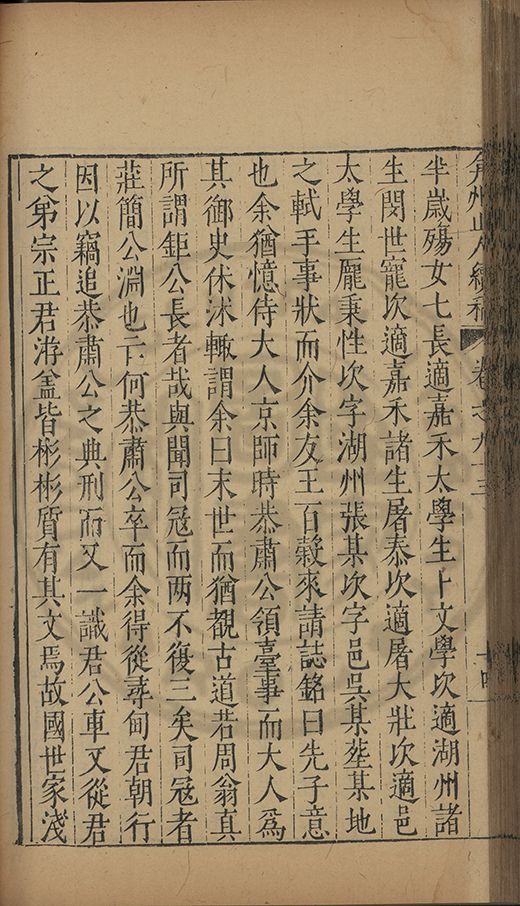 弇州山人續稿 卷之九十三 十四
半歲殤女七長適嘉禾太學生卜文學次適湖州諸
生閔世寵次適嘉禾諸生屠泰次適屠大壯次適邑
太學生龐秉性次字湖州張某次字邑吳某塟某地
之軾手事狀而介余友王百穀來請誌銘曰先子意
也余猶憶侍大人京師時恭肅公領臺事而大人爲
其御史休沐輙謂余曰末世而猶覩古道若周翁真
所謂鉅公長者哉與聞司冦而两不復三矣司冦者
莊簡公淵也亡何恭肅公卒而余得從尋甸君朝行
因以竊追恭肅公之典刑而又一識君公車又從君
之弟宗正君游盖皆彬彬質有其文焉故國世家淺